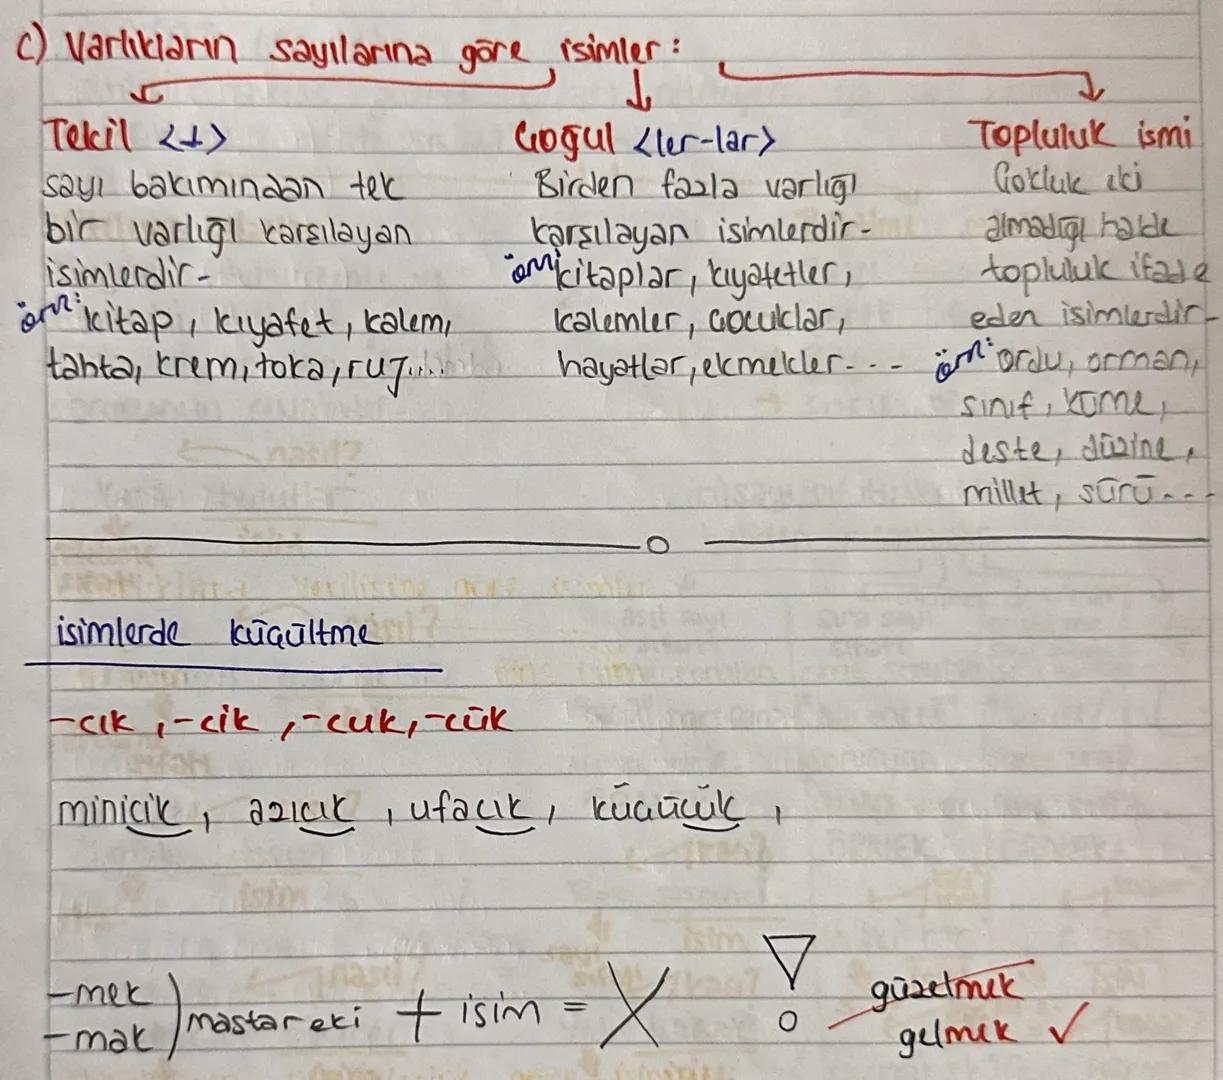 c) Varlıkların sayılarına göre isimler :
Tekil <1>
sayı bakımından tek
bir varlığı karşılayan
isimlerdir-
örn: kitap, kıyafet, kalem,
tahta, krem, toka, ruj.....
Çoğul <ler-lar>
Birden fazla varlığı
karşılayan isimlerdir-
örn: kitaplar, kıyafetler,
kalemler, çocuklar,
hayatlar, ekmekler...
Topluluk ismi
Çokluk eki
almadığı halde
topluluk ifade
eden isimlerdir-
örn: ordu, orman,
sınıf, küme,
deste, düzine,
millet, sürü...
isimlerde küçültme
-cık, -cik, -cuk, -cük
minicik, azıcık, ufacık, küçücük,
-mek
-mak ) mastar eki + isim = X
güzelmek
gelmek ✓